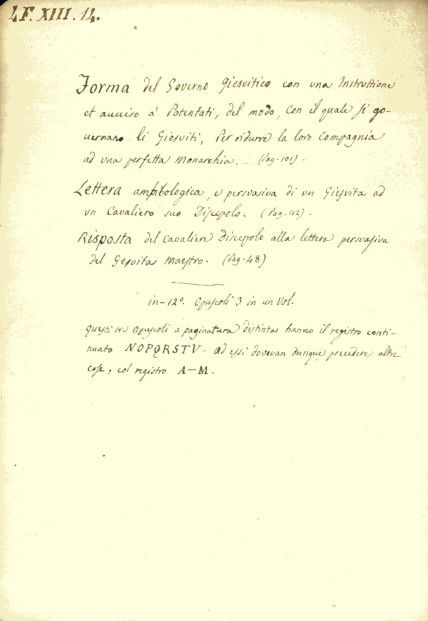 4F. XIII. 14.
Forma del Governo Giesuitico con una Instruttione
et auuiso a' Potentati, del modo, con il quale si go-
uernano li Giesuiti, per ridurre la loro Compagnia
ad una perfetta Monarchia. _ (Pag. 101) -
Lettera amfibologica, e persvasiva di un Giesvita ad
vn Cavaliero suo Discepolo. (Pag. 42) -
Risposta del Cavaliero Discepolo alla lettera persvasiva
del Gesvita Maestro. (Pag. 48)
in-12°. Opuscoli 3 in un Vol.
Questi tre opuscoli a paginatura distinta hanno il registro conti-
nuato NOPQRSTV. Ad essi dovevan dunque precedere altre
cose, col registro A-M.